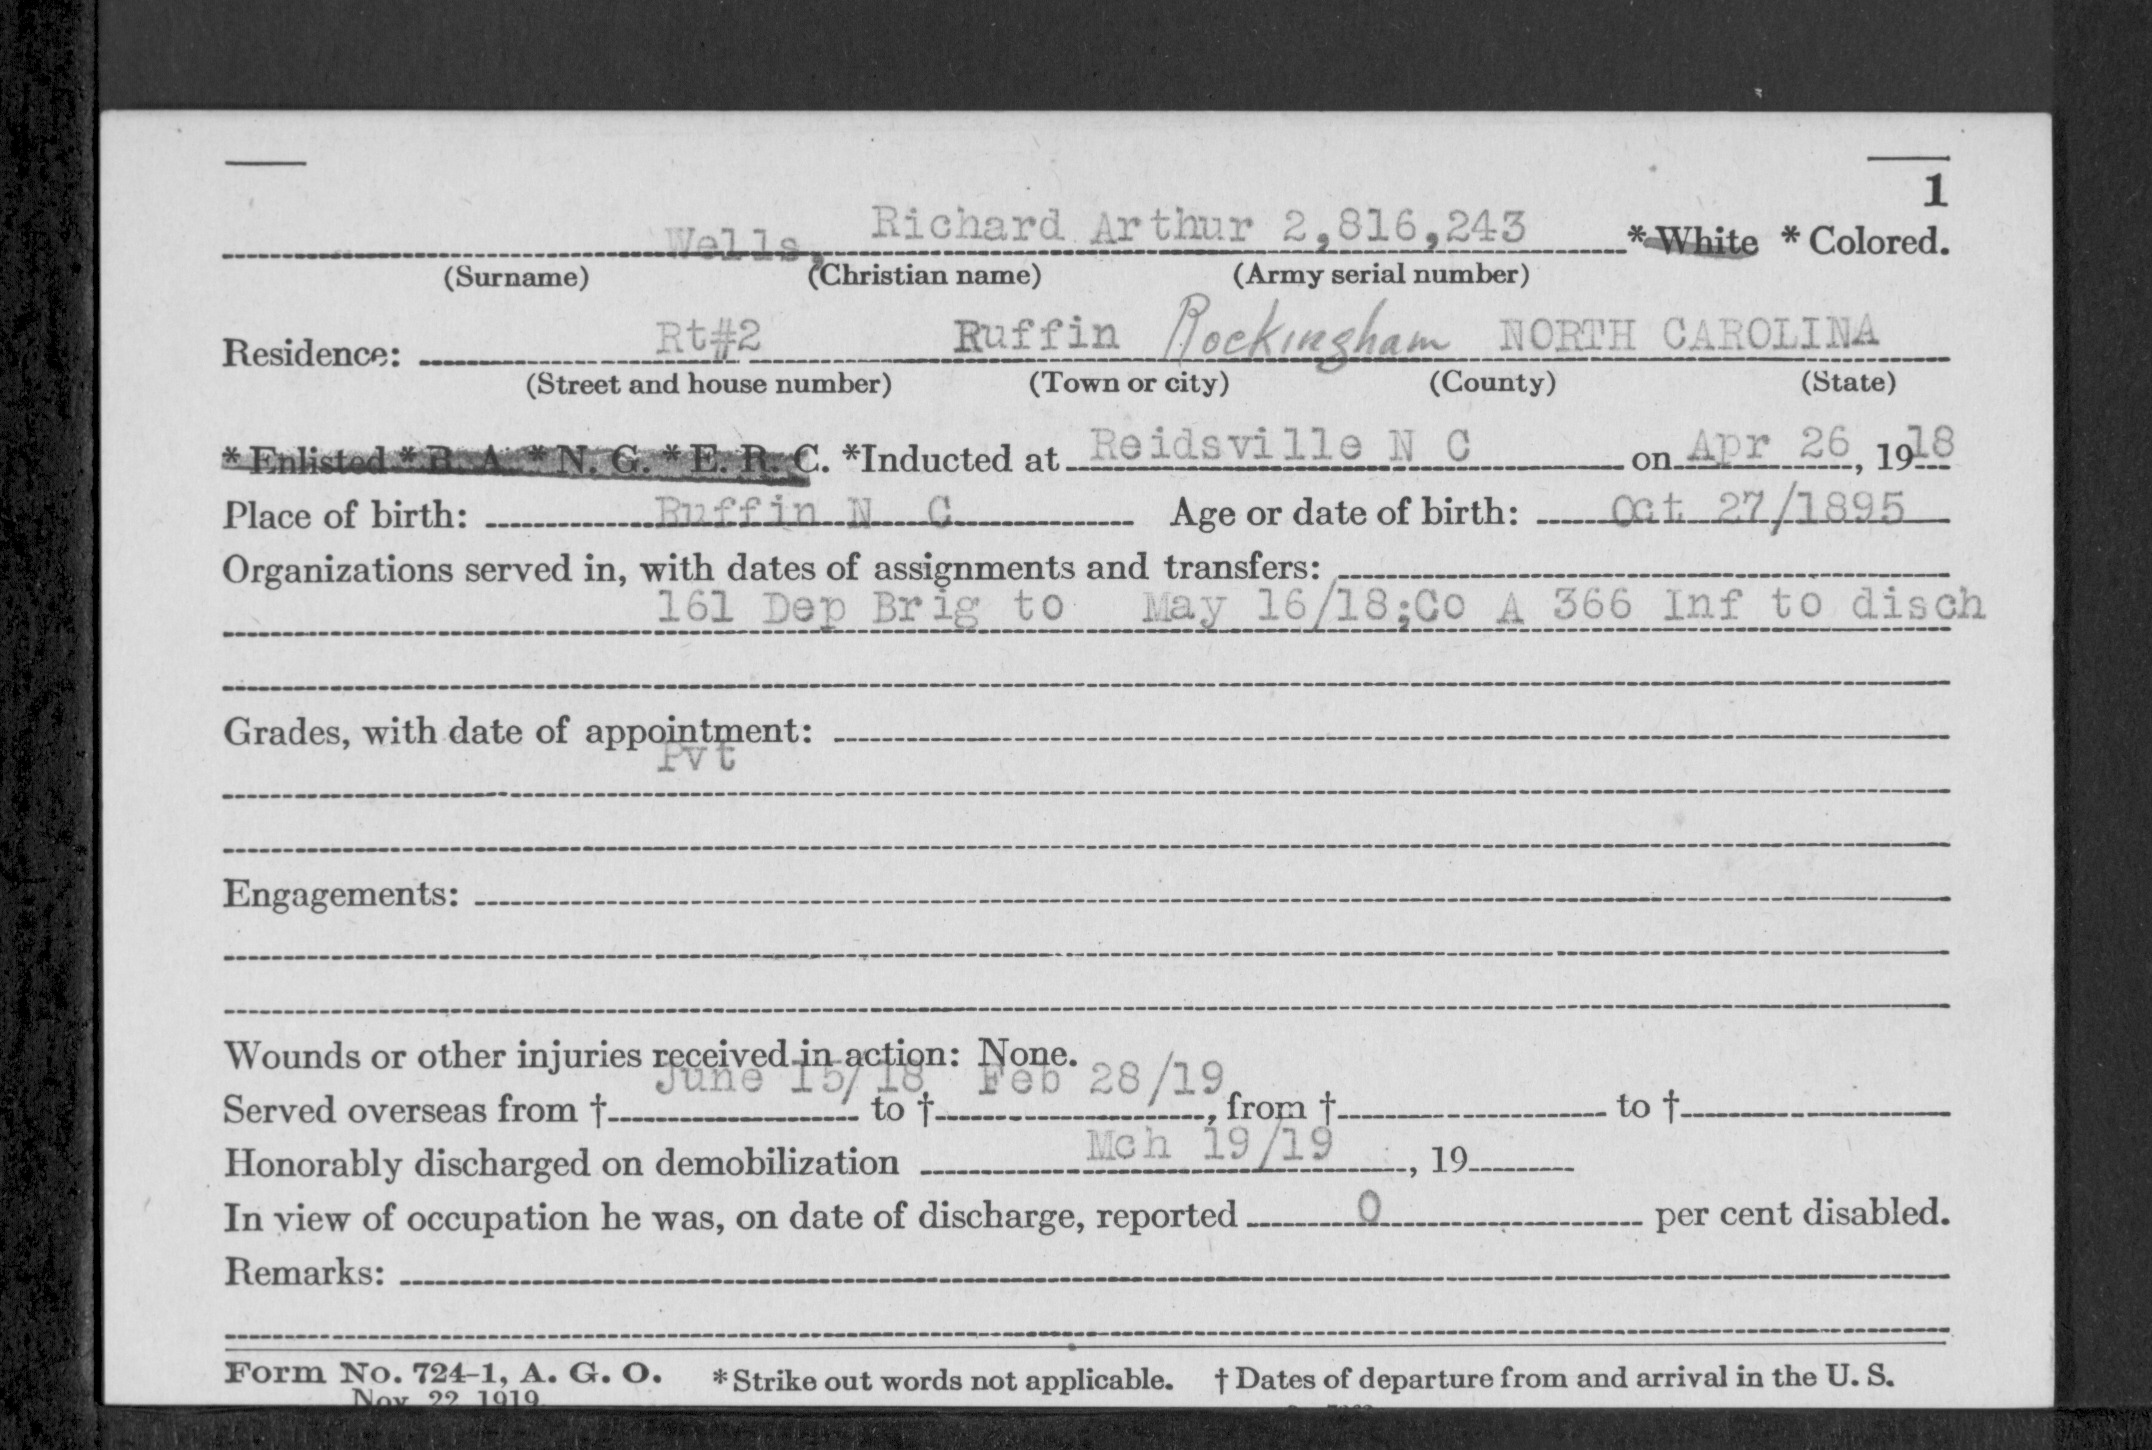 1
Wells, Richard Arthur 2,816,243 * White * Colored.
(Surname) (Christian name) (Army serial number)
Residence: Rt#2 Ruffin Rockingham NORTH CAROLINA
(Street and house number) (Town or city) (County) (State)
* Enlisted * R. A. * N. G. * E. R. C. *Inducted at Reidsville N C on Apr 26, 1918
Place of birth: Ruffin N C Age or date of birth: Oct 27/1895
Organizations served in, with dates of assignments and transfers:
161 Dep Brig to May 16/18;Co A 366 Inf to disch
Grades, with date of appointment:
Pvt
Engagements:
Wounds or other injuries received in action: None.
Served overseas from † June 15/18 to † Feb 28/19, from † to †
Honorably discharged on demobilization Mch 19/19, 19
In view of occupation he was, on date of discharge, reported 0 per cent disabled.
Remarks:
Form No. 724-1, A. G. O. * Strike out words not applicable. † Dates of departure from and arrival in the U. S.
Nov. 22, 1919.